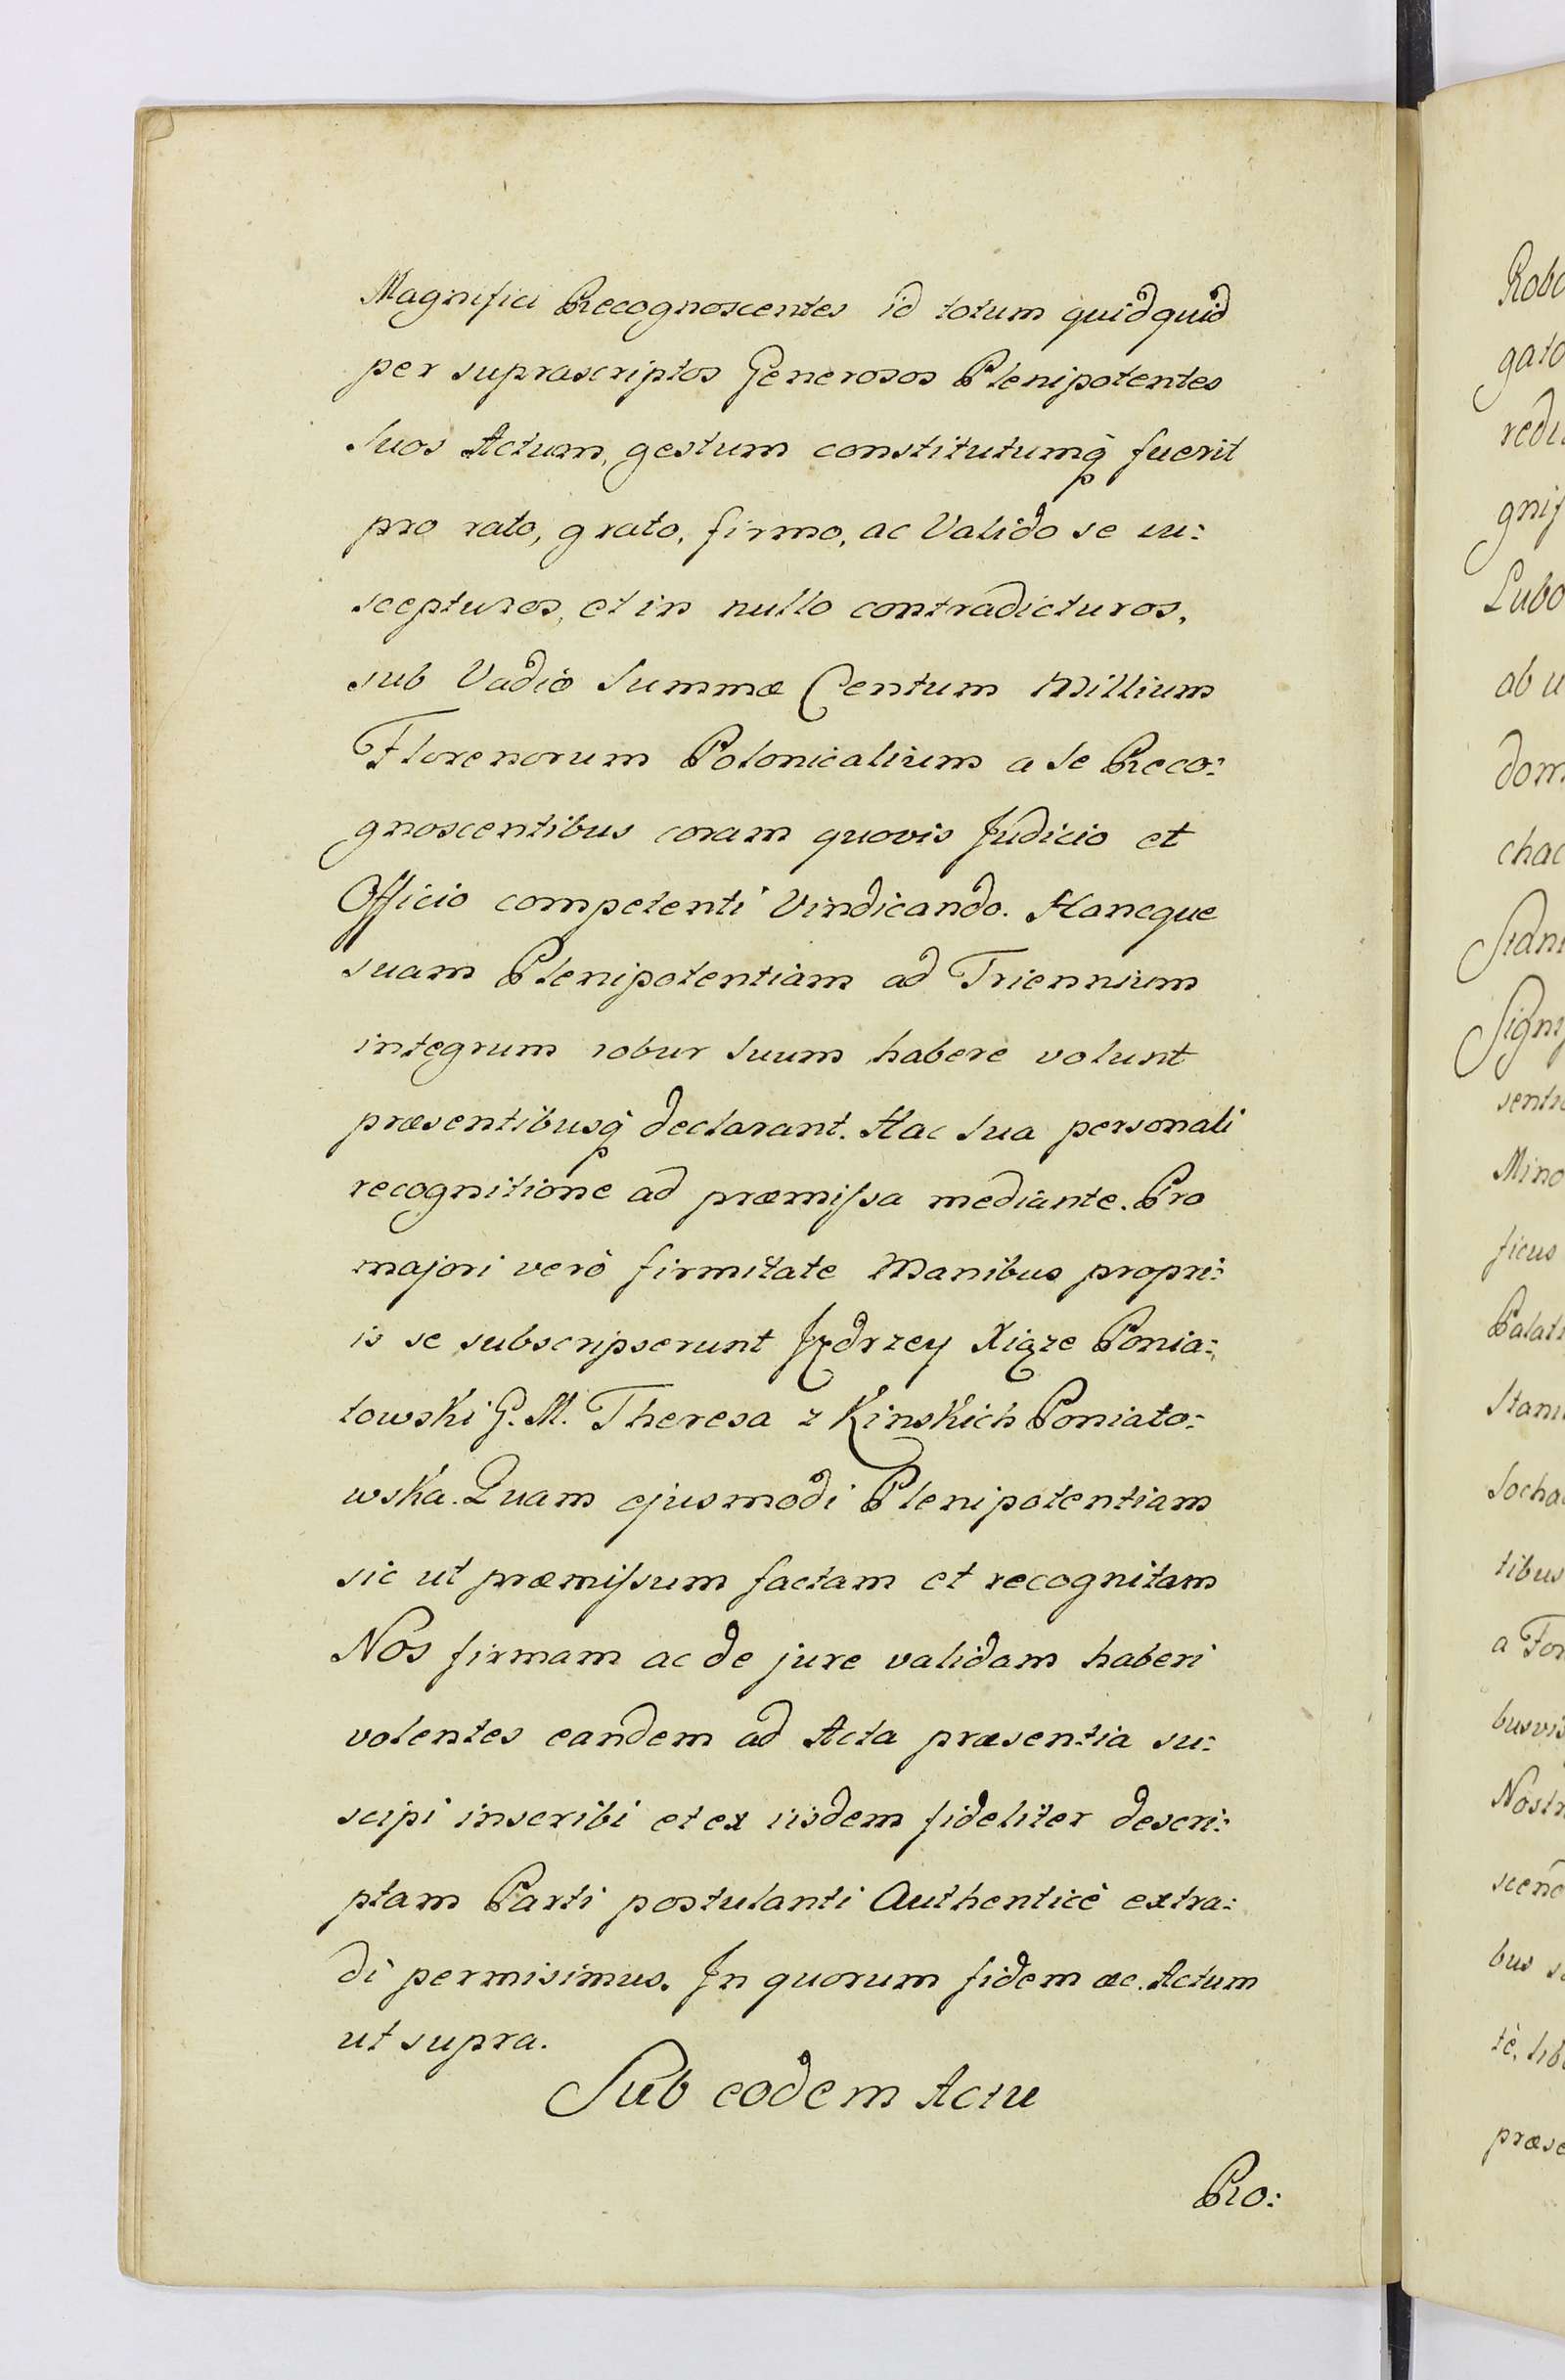 Magnifici Recognoscentes id totum quidquid
per suprascriptos Generosos Plenipotentes
Suos Actum, gestum constitutumq́ fuerit
pro rato, grato, firmo, ac Valido se su:
scepturos, et in nullo contradicturos,
sub Vadio Summæ Centum Millium
Florenorum Polonicalium a Se Reco:
gnoscentibus coram quovis Judicio et
Officio competenti Vindicando. Hancque
suam Plenipotentiam ad Triennium
integrum robur Suum habere volunt
præsentibusq́ declarant. Hac Sua personali
recognitione ad præmiſsa mediante. Pro
majori verò firmitate Manibus propri:
is se subscripserunt Jędrzey Xiąze Ponia:
towski G. M. Theresa z Kinskich Poniato:
wska. Quam ejusmodi Plenipotentiam
sic ut præmiſsum factam et recognitam
Nos firmam ac de jure validam haberi
volentes eandem ad Acta præsentia su:
scipi inscribi et ex iisdem fideliter descri:
ptam Parti postulanti Authenticè extra:
di permisimus. Jn quorum fidem &c. Actum
ut supra.
Sub eodem Actu
Pro:
Robo
gato
gnif
Lubo
ab u
dom
chac
Sign
Mino
ficus
Palati
Stani
Socha
tibus
busvis
Nostr
bus
præse